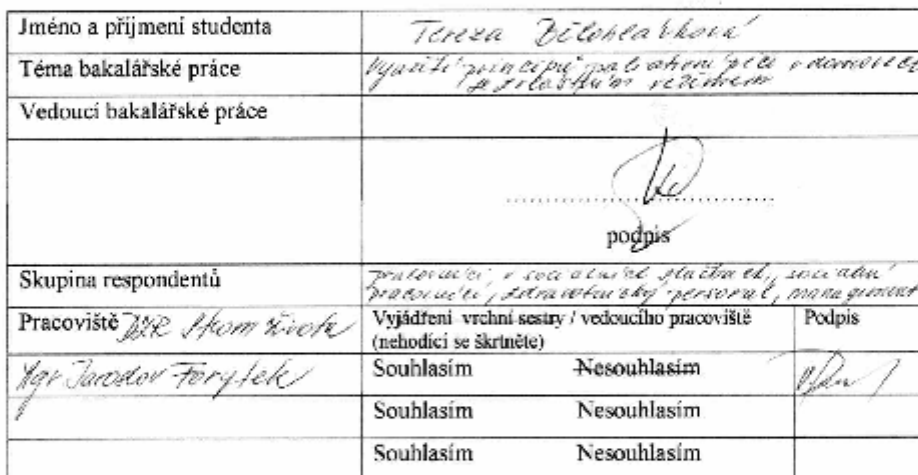 Jméno a příjmení studenta Tereza Bělohlávková
Téma bakalářské práce Využití principů paliativní péče v domovech
se zvláštním režimem
Vedoucí bakalářské práce
podpis
Skupina respondentů pracovníci v sociálních službách, sociální
pracovníci, zdravotnický personál, management
Pracoviště DZR Vyjádření vrchní sestry / vedoucího pracoviště Podpis
(nehodící se škrtněte)
Mgr. Souhlasím Nesouhlasím
Souhlasím Nesouhlasím
Souhlasím Nesouhlasím